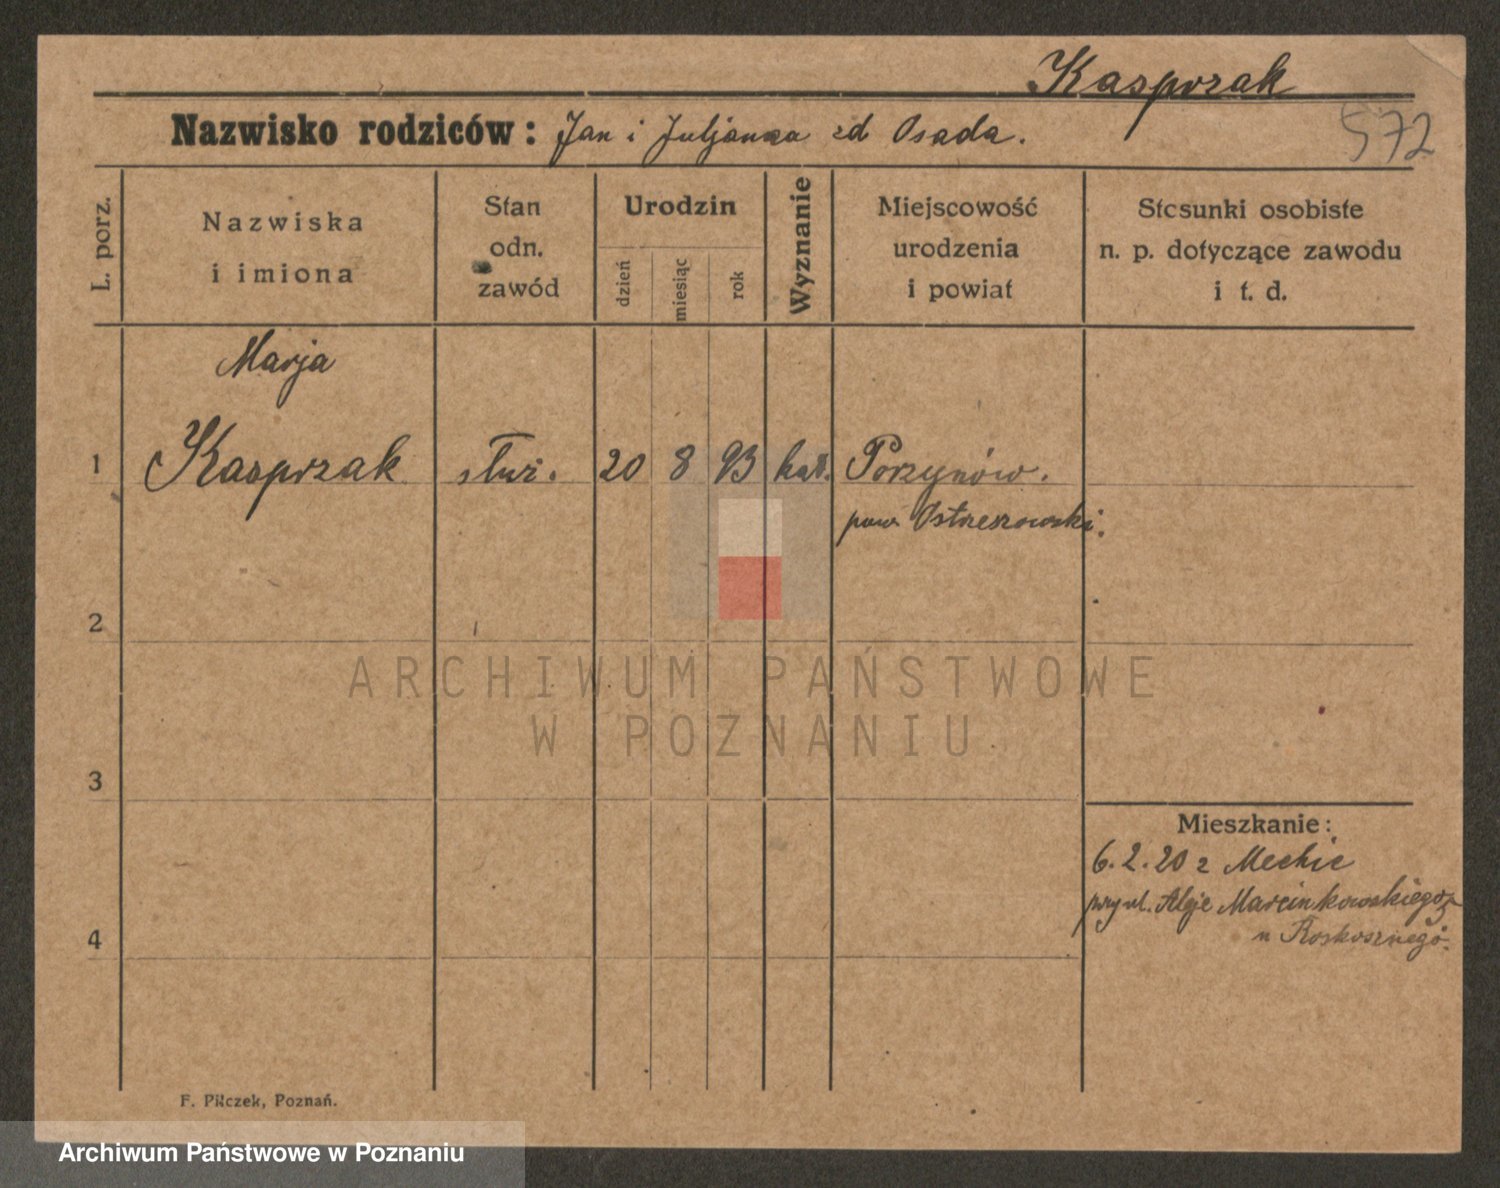 Kasprzak
Nazwisko rodziców: Jan i Juljanna zd Osada.
572
L. porz.
Nazwiska
i imiona
Stan
odn.
zawód
Urodzin
dzień
miesiąc
rok
Wyznanie
Miejscowość
urodzenia
i powiat
Stosunki osobiste
n. p. dotyczące zawodu
i t. d.
Marja
1 Kasprzak służ. 20 8 93 kat. Porzynów.
pow Ostrzeszowski.
2
ARCHIWUM PAŃSTWOWE
W POZNANIU
3
Mieszkanie:
6.2.20 z
przy ul. Aleje Marcinkowskiego
u Roskosznego.
4
F. Pilczek, Poznań.
Archiwum Państwowe w Poznaniu